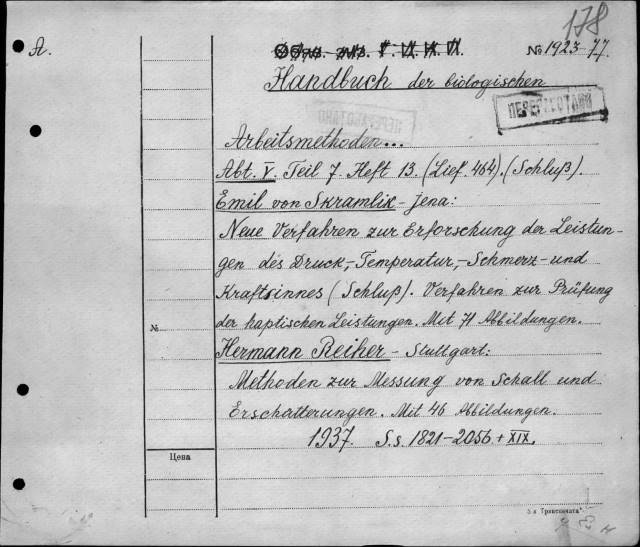 178
A.
№ 1923-77.
Handbuch der biologischen
ПЕРЕРАБОТАНО
ПЕРЕРАБОТАНО
Arbeitsmethoden...
Abt. V. Teil 7. Heft 13. (Lief. 464). (Schluß).
Emil von Skramlik - Jena:
Neue Verfahren zur Erforschung der Leistun-
gen des Druck,- Temperatur,- Schmerz- und
Kraftsinnes (Schluß). Verfahren zur Prüfung
der haptischen Leistungen. Mit 71 Abbildungen.
№
Hermann Reiher - Stuttgart:
Methoden zur Messung von Schall und
Erschütterungen. Mit 46 Abbildungen.
1937. S.s. 1821-2056 + XIX.
Цена
5-я Транспечать